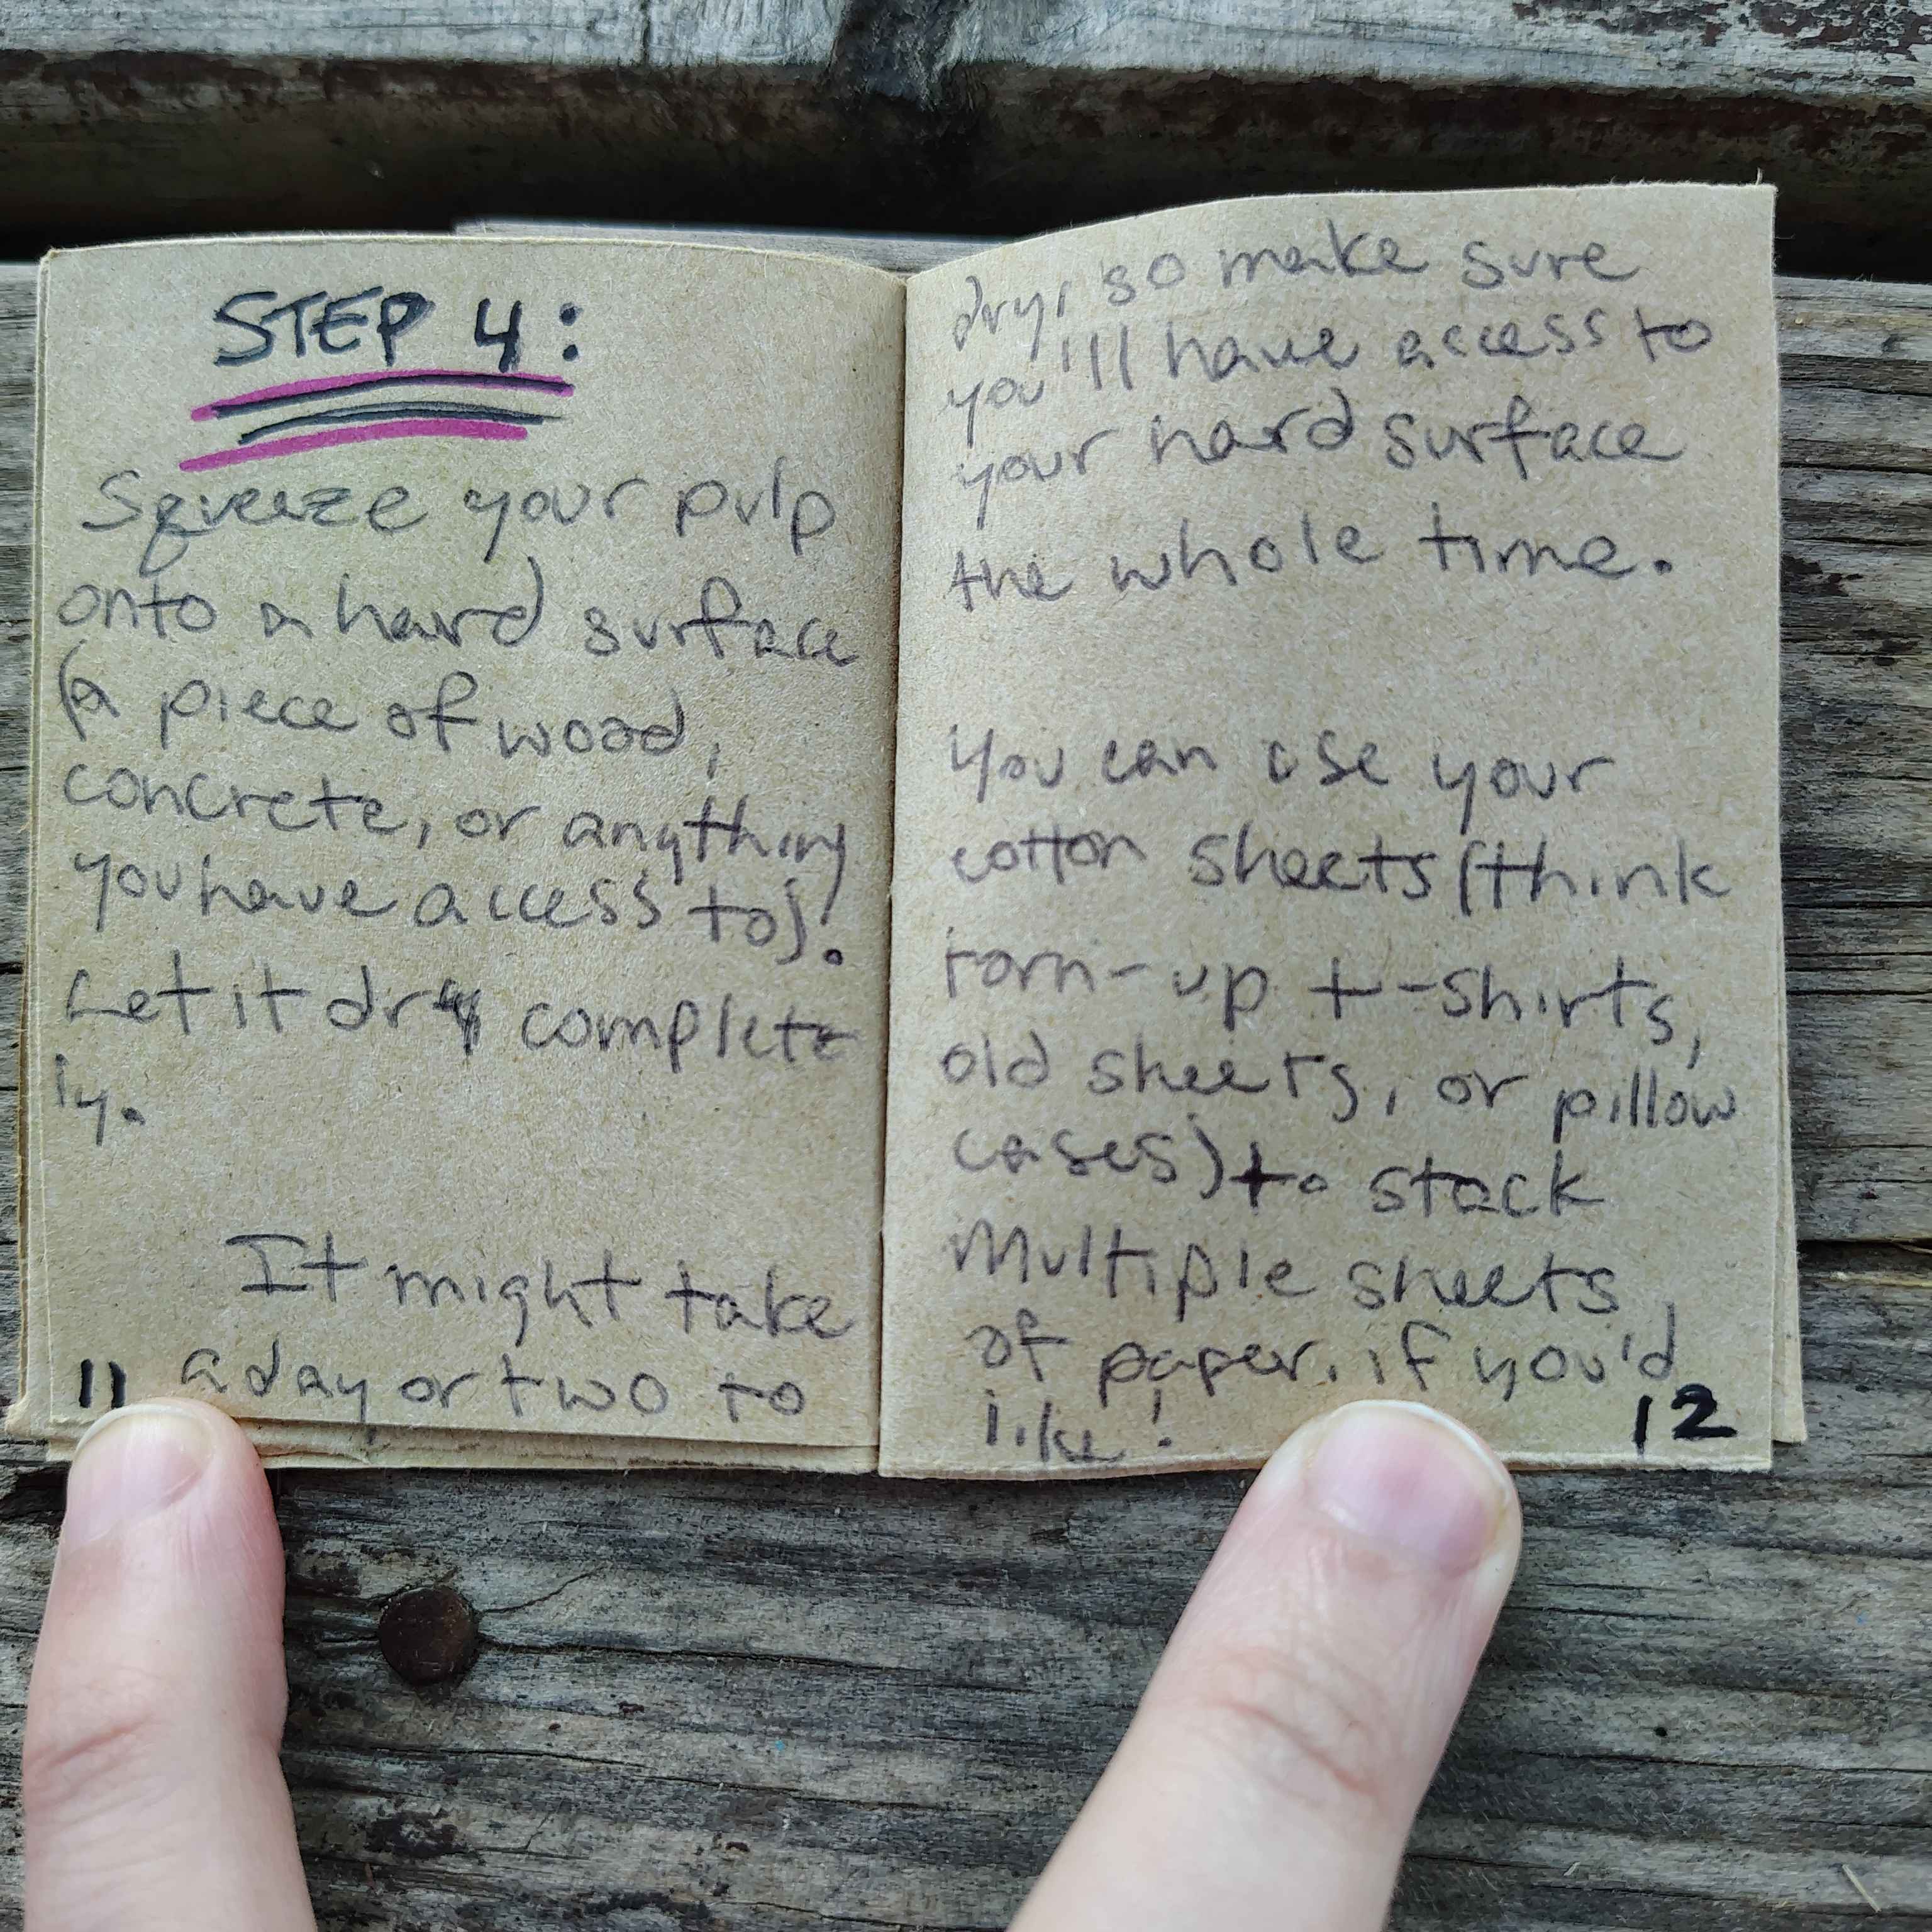 STEP 4:
Squeeze your pulp
onto a hard surface
(a piece of wood,
concrete, or anything
you have access to)!
Let it dry complete
ly.
It might take
a day or two to
11
dry, so make sure
you'll have access to
your hard surface
the whole time.
You can use your
cotton sheets (think
torn-up t-shirts,
old sheets, or pillow
cases) to stack
Multiple sheets
of paper, if you'd
like!
12